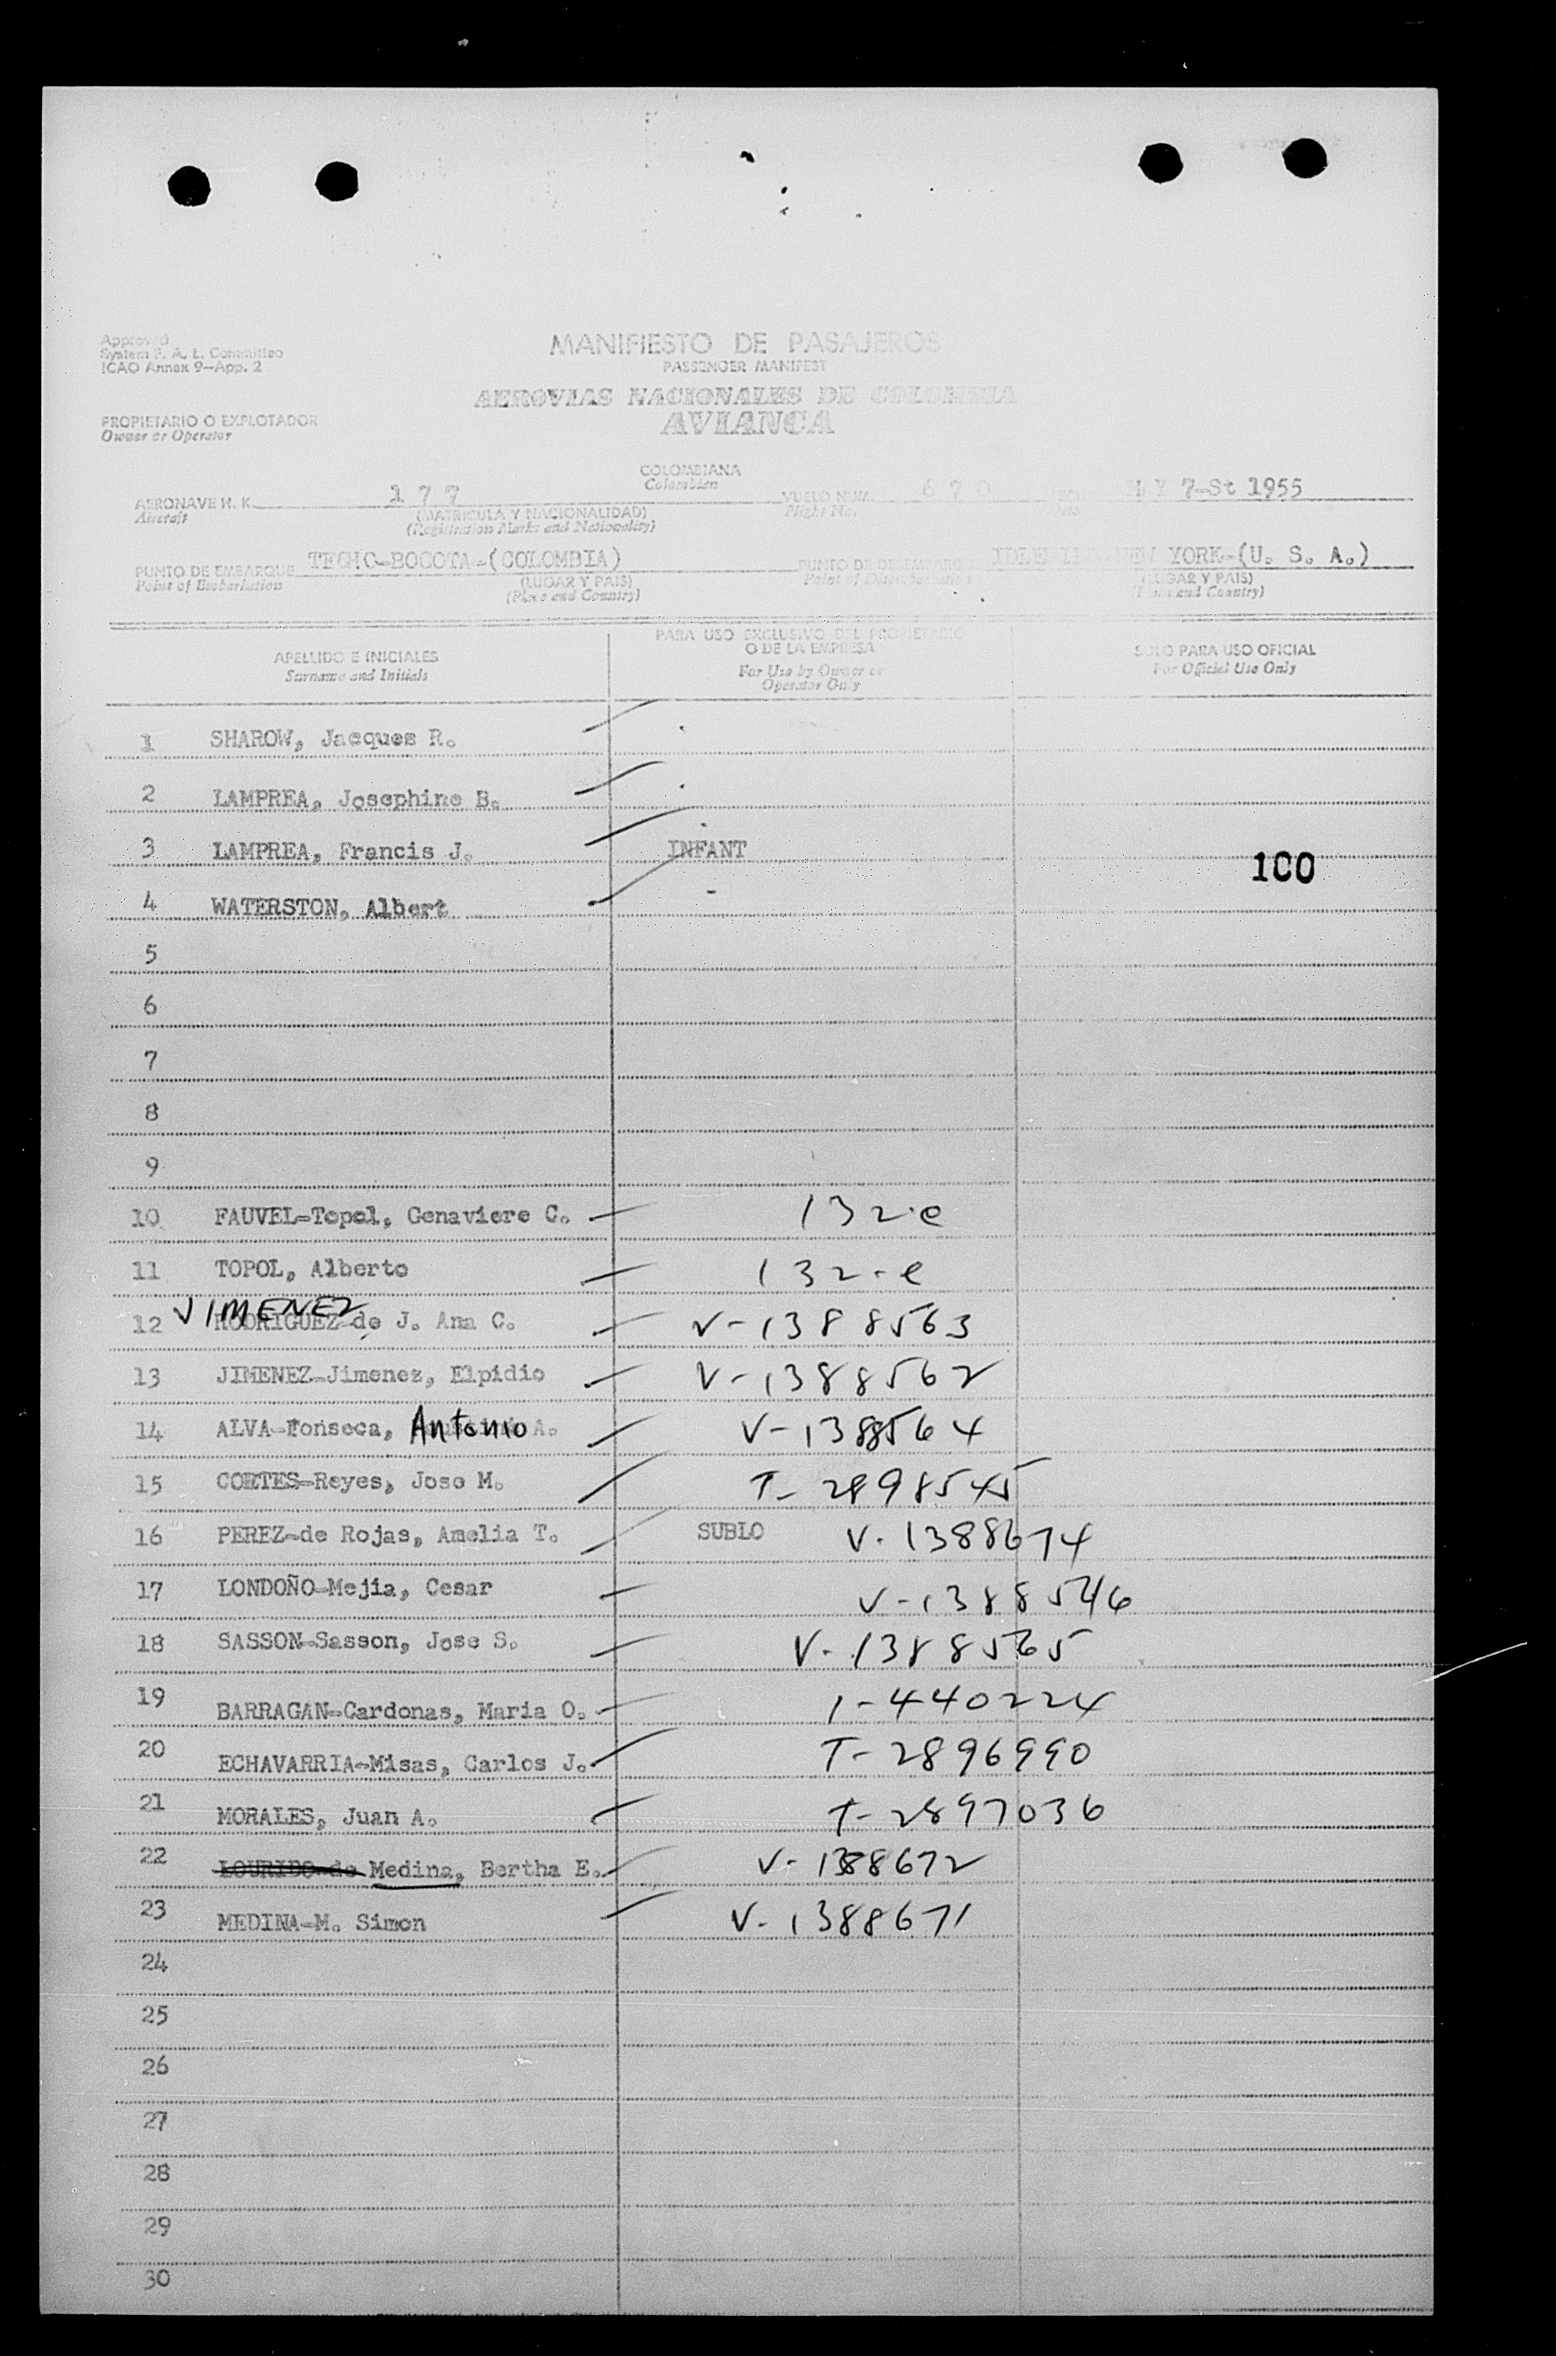 Approved
System F. A. L. Committee
ICAO Annex 9-App. 2
MANIFIESTO DE PASAJEROS
PASSENGER MANIFEST
AEROVIAS NACIONALES DE COLOMBIA
AVIANCA
PROPIETARIO O EXPLOTADOR
Owner or Operator
COLOMBIANA
Colombian
AERONAVE H. K. 177 VUELO NUM. 670 MAY 7-St 1955
Aircraft (MATRICULA Y NACIONALIDAD) Flight No.
(Registration Marks and Nationality)
PUNTO DE EMBARQUE TECHO-BOGOTA-(COLOMBIA) PUNTO DE DESEMBARQUE NEW YORK-(U. S. A.)
Point of Embarkation (LUGAR Y PAIS) Point of Disembarkation (LUGAR Y PAIS)
(Place and Country) (Place and Country)
APELLIDO E INICIALES
Surname and Initials
PARA USO EXCLUSIVO DEL PROPIETARIO
O DE LA EMPRESA
For Use by Owner or
Operator Only
SOLO PARA USO OFICIAL
For Official Use Only
1 SHAROW, Jacques R.
2 LAMPREA, Josephine B.
3 LAMPREA, Francis J. INFANT
100
4 WATERSTON, Albert
5
6
7
8
9
10 FAUVEL-Topol, Genaviere C. 132.e
11 TOPOL, Alberto 132.e
JIMENEZ
12 RODRIGUEZ de J. Ana C. V-1388563
13 JIMENEZ-Jimenez, Elpidio V-1388562
14 ALVA-Fonseca, Antonio A. V-1388564
15 CORTES-Reyes, Jose M. T-2898545
16 PEREZ-de Rojas, Amelia T. SUBLO V-1388674
17 LONDOÑO-Mejia, Cesar V-1388546
18 SASSON-Sasson, Jose S. V-1388565
19 BARRAGAN-Cardonas, Maria O. 1-440224
20 ECHAVARRIA-Misas, Carlos J. T-2896990
21 MORALES, Juan A. T-2897036
22 LOURIDO-de Medina, Bertha E. V-1388672
23 MEDINA-M. Simon V-1388671
24
25
26
27
28
29
30